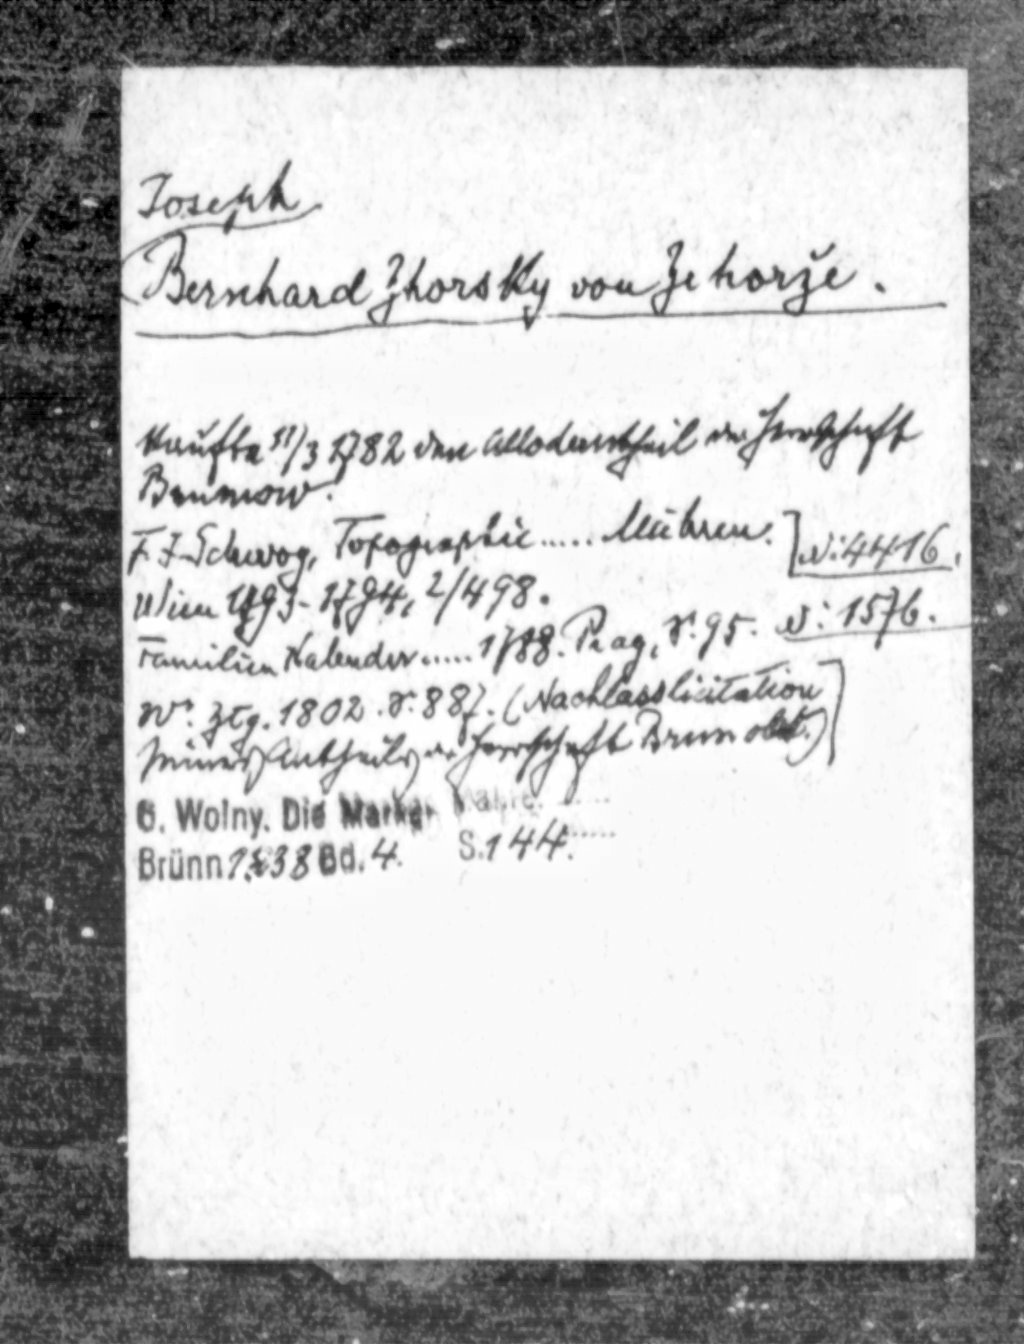 Joseph
Bernhard Zhorsky von Zehorže.
Kaufte 11/3 1782 den Allodantheil der Herrschaft
Brumow.
F. J. Schwoy, Topographie ..... Mähren. ] N: 4416.
Wien 1793-1794, 2/498.
Familien Kalender ..... 1788. Prag, S. 95. N: 1576.
Wr. Ztg. 1802. S. 887. (Nachlasslicitation
seines Antheils der Herrschaft Brumow.)]
G. Wolny. Die Markgr. Mähre. ......
Brünn 1838 Bd. 4. S. 144.